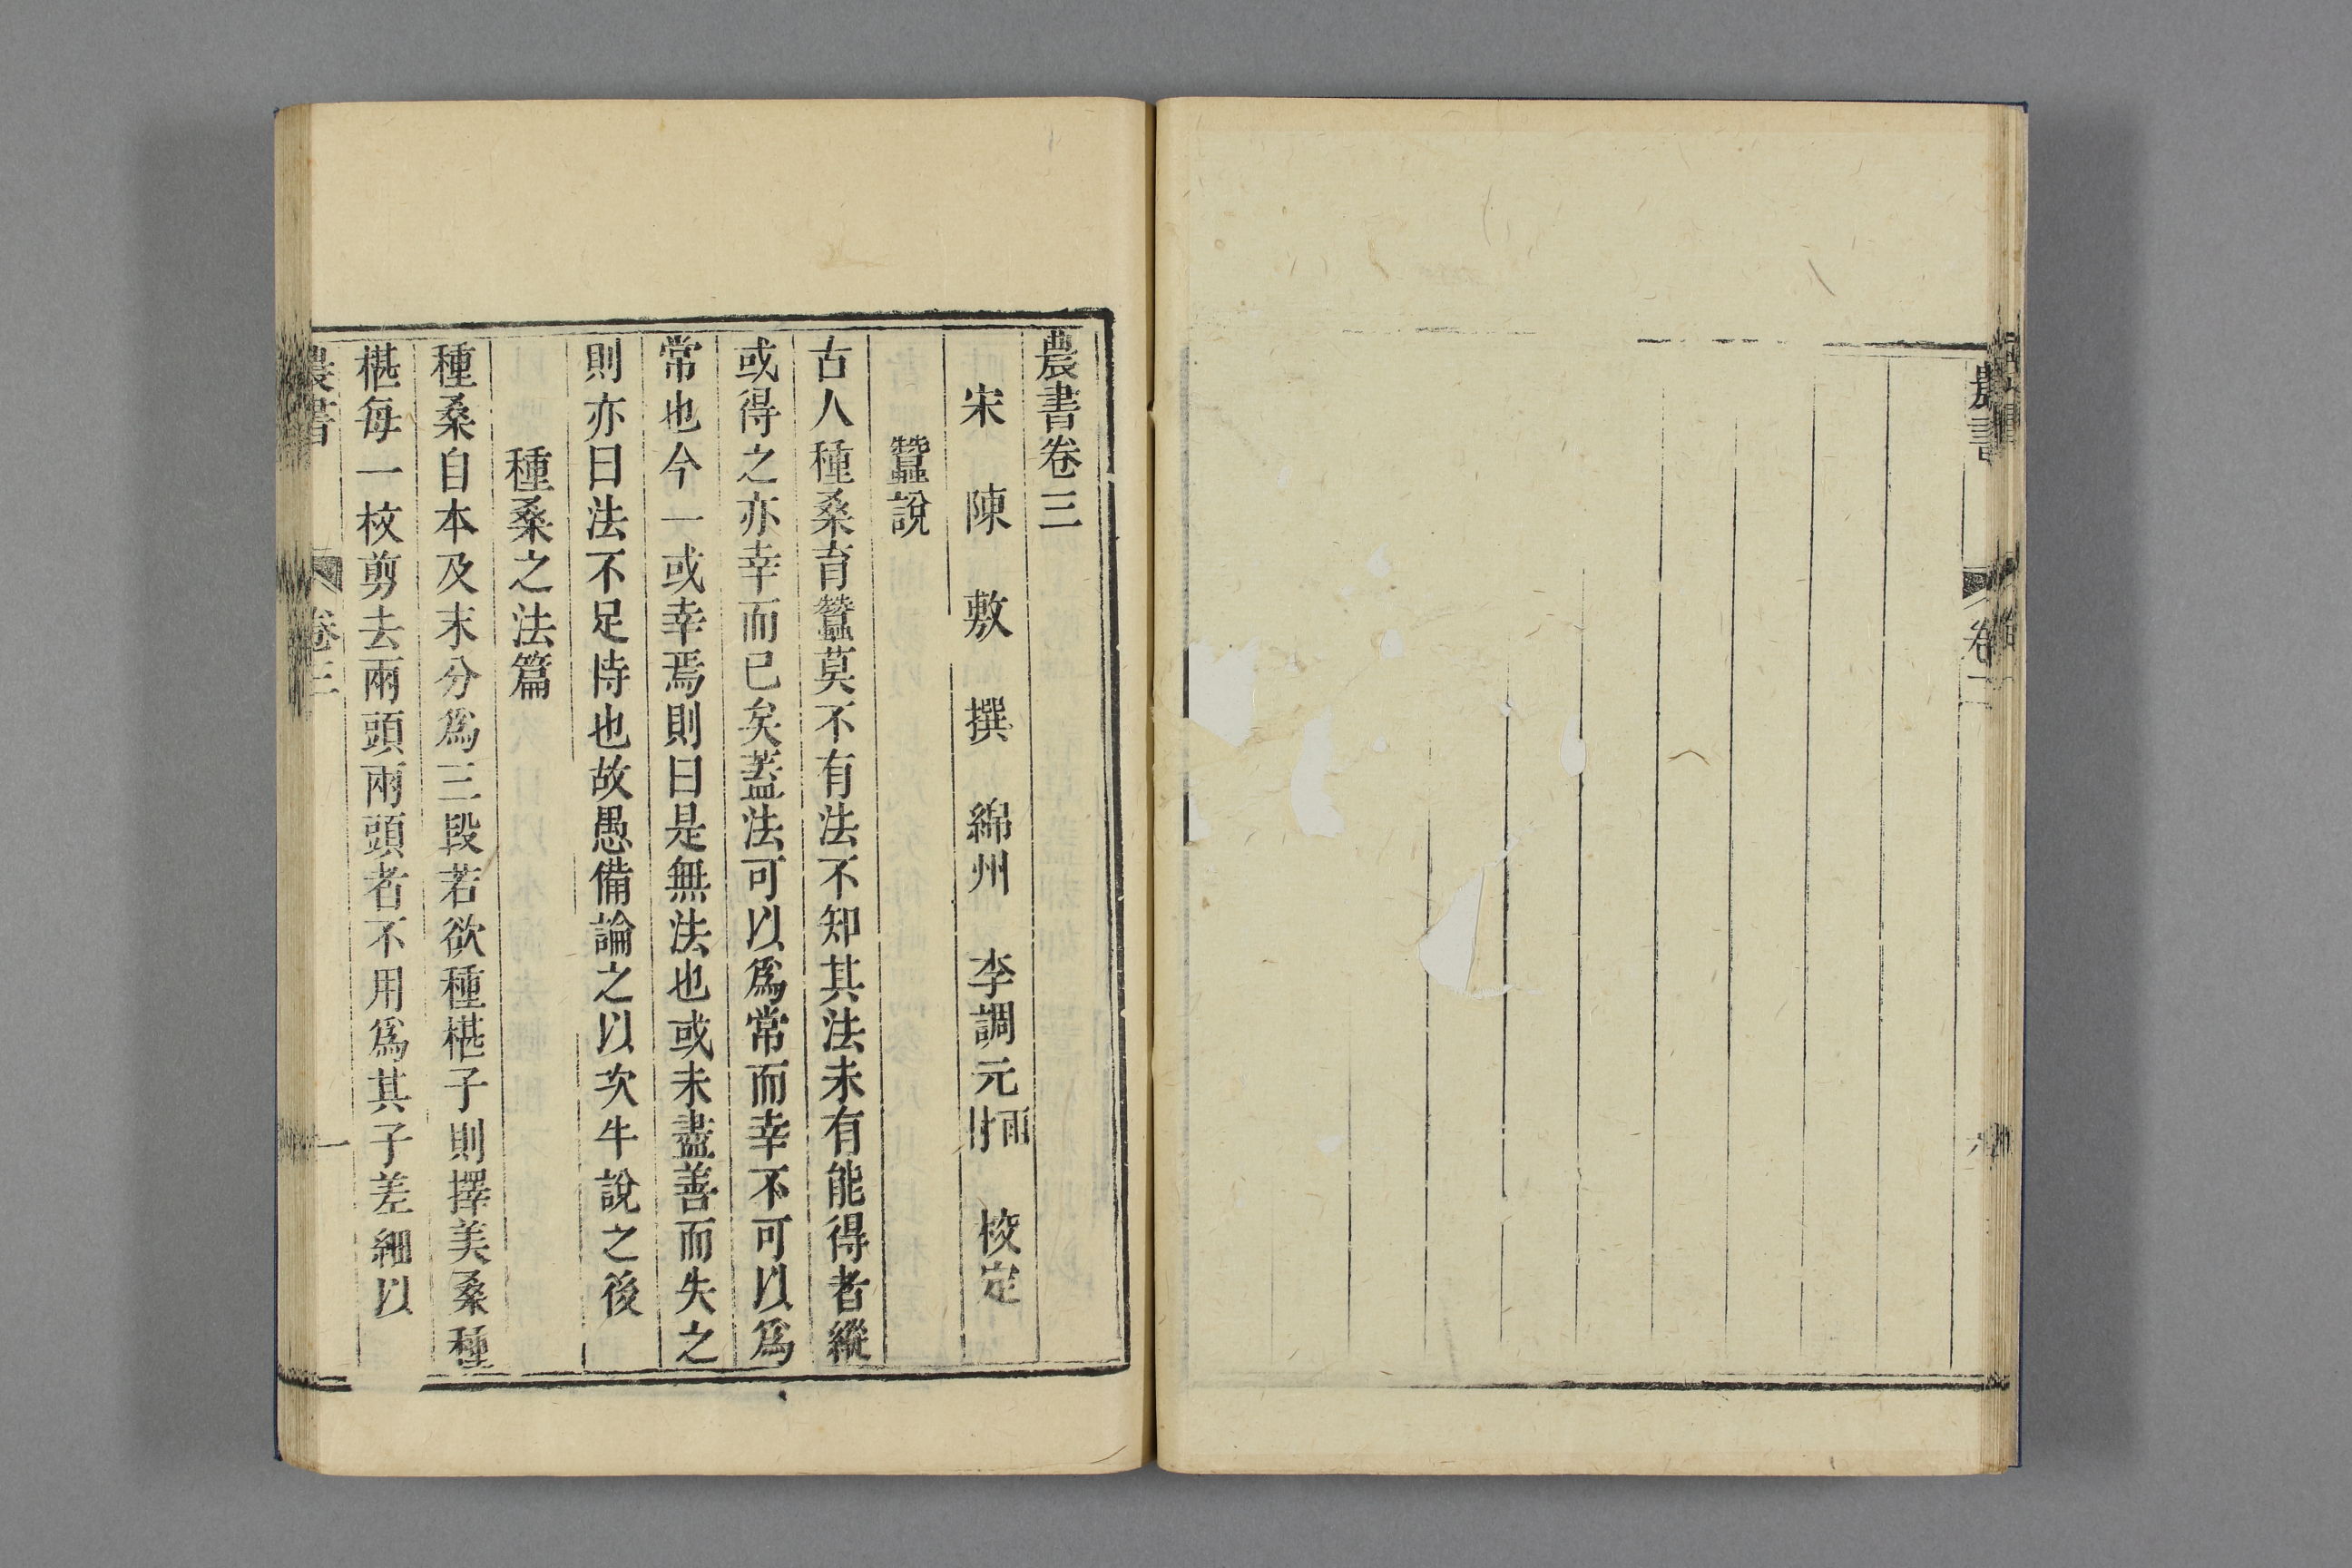 農書
卷二
農書卷三
宋 陳 敷 撰 綿州 李調元 雨村 校定
蠶說
古人種桑育蠶莫不有法不知其法未有能得者縱
或得之亦幸而已矣蓋法可以爲常而幸不可以爲
常也今一或幸焉則曰是無法也或未盡善而失之
則亦曰法不足恃也故愚備論之以次牛說之後
種桑之法篇
種桑自本及末分爲三段若欲種椹子則擇美桑種
椹每一枚剪去兩頭兩頭者不用爲其子差細以
農書
卷三
一